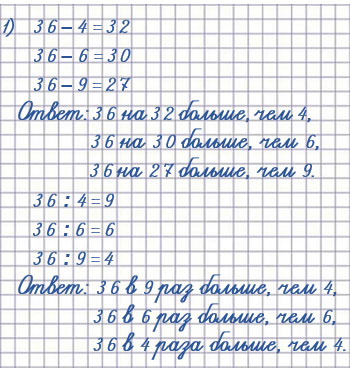 1) 36 – 4 = 32
36 – 6 = 30
36 – 9 = 27
Ответ: 36 на 32 больше, чем 4,
36 на 30 больше, чем 6,
36 на 27 больше, чем 9.
36 : 4 = 9
36 : 6 = 6
36 : 9 = 4
Ответ: 36 в 9 раз больше, чем 4,
36 в 6 раз больше, чем 6,
36 в 4 раза больше, чем 4.